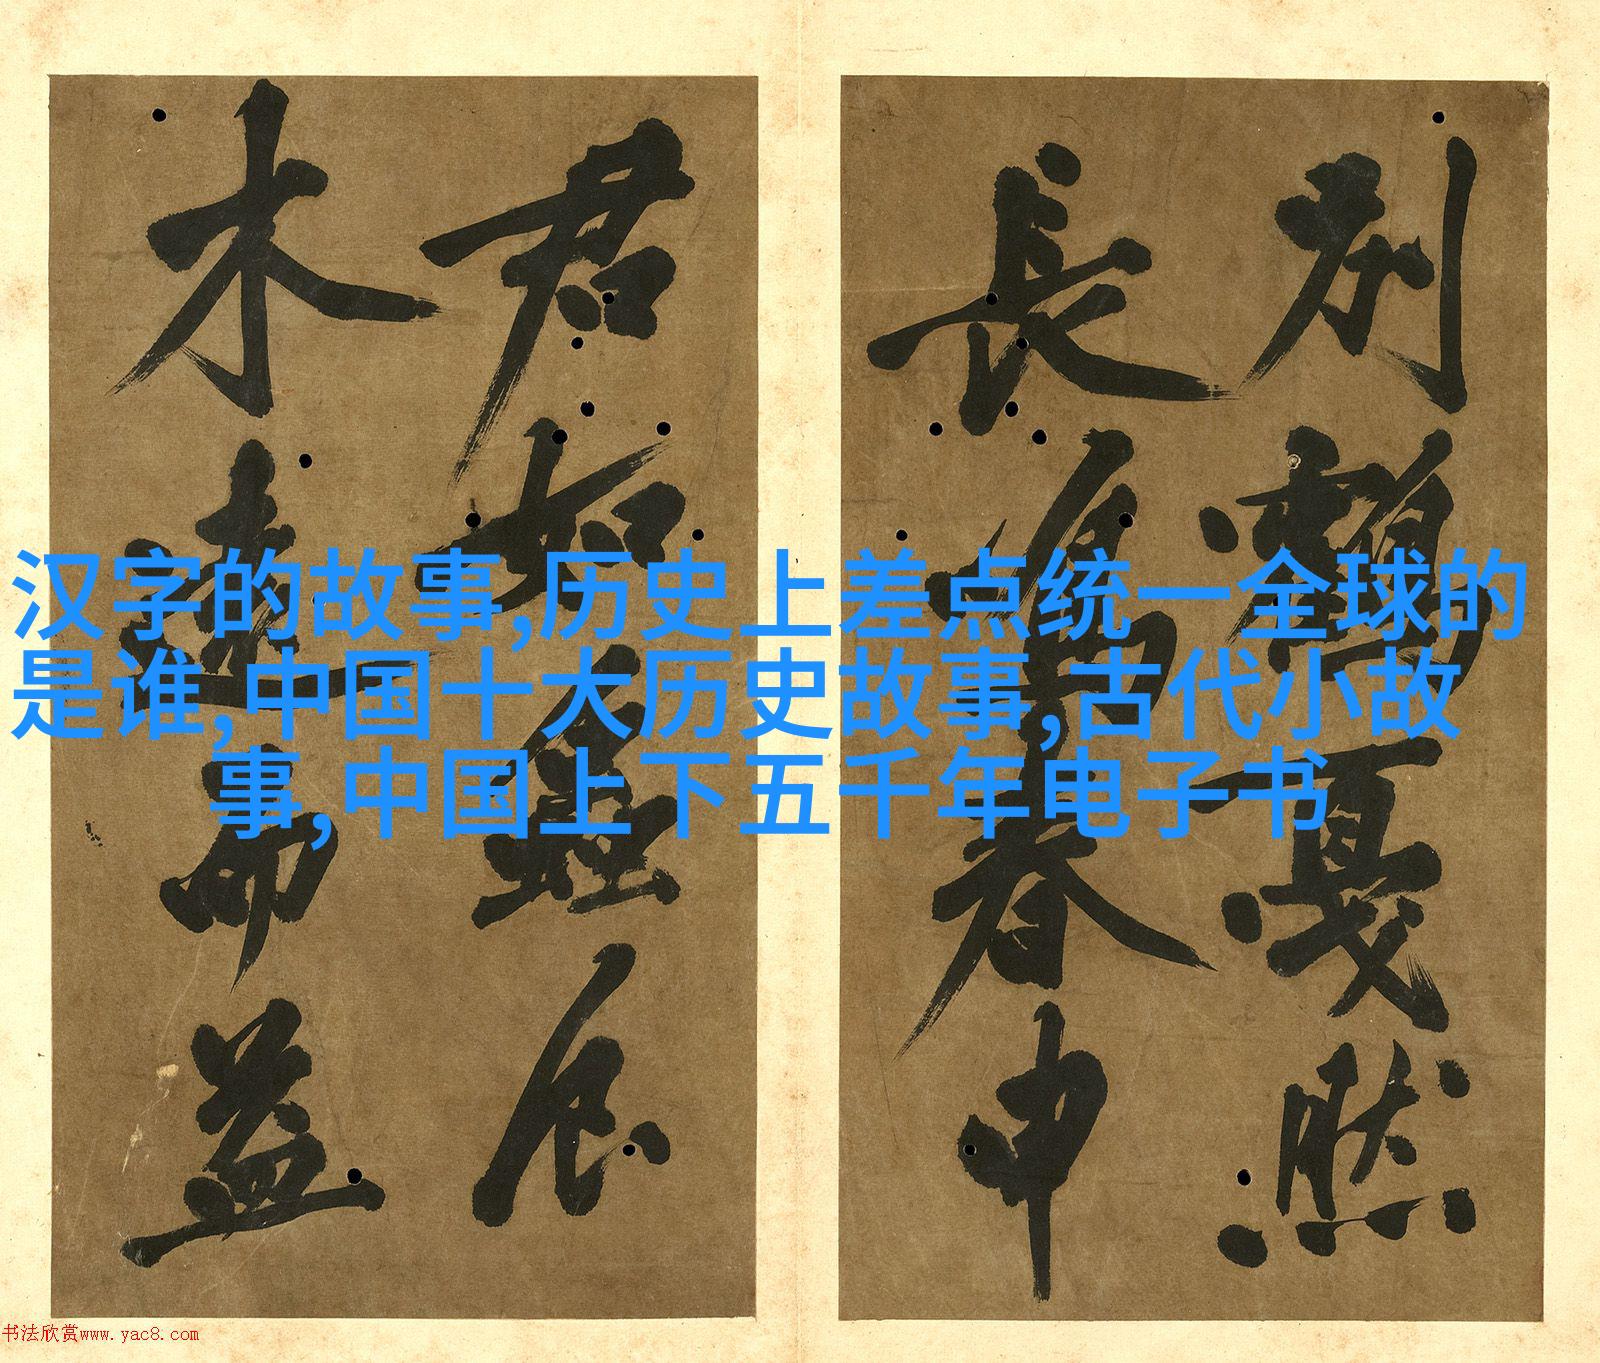 汉字的故事,历史上差点统一全球的
是谁,中国十大历史故事,古代小故
事,中国上下五千年电子书
別鶴戛然
長鳴春申
君如
木遠而益
书法欣赏www.yac8.com